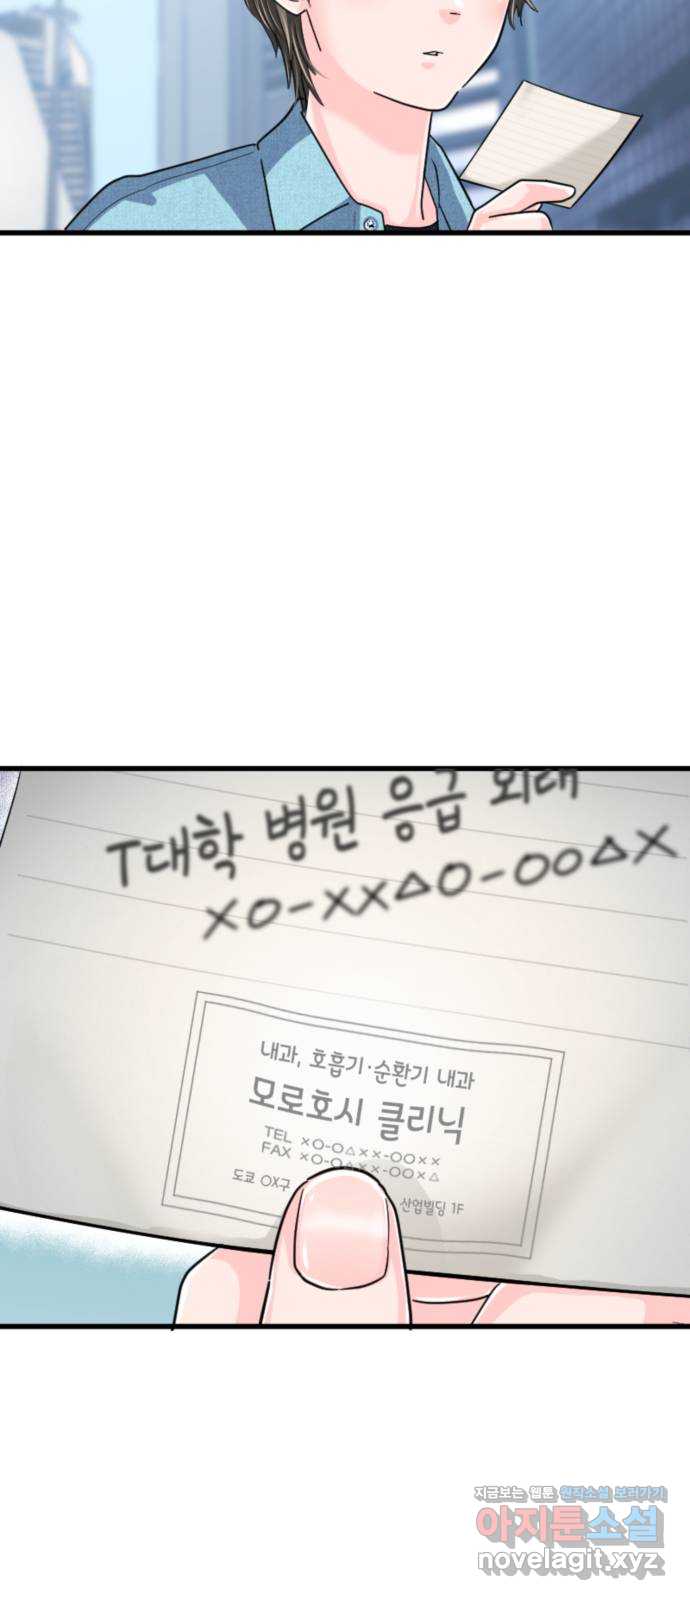 T대학 병원 응급 외래
XO-XX△O-OO△X
내과, 호흡기·순환기 내과
모로호시 클리닉
TEL XO-O△XX-OOXX
FAX XO-O△XX-OOX△
도쿄 OX구 산업빌딩 1F
지금보는 웹툰 원작소설 보러가기
아지툰소설
novelagit.xyz